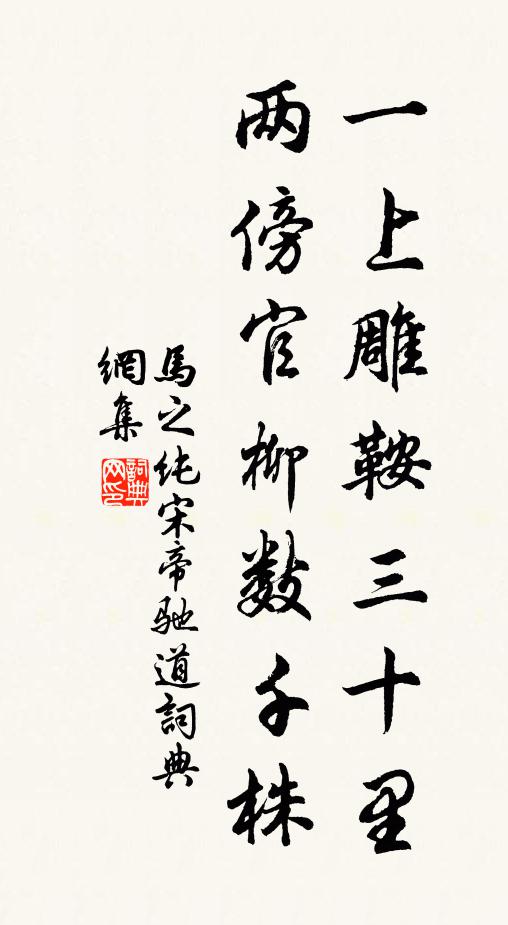 一上雕鞍三十里
两傍官柳数千株
馬之纯宋帝驰道詞典
網集
詞典
网印